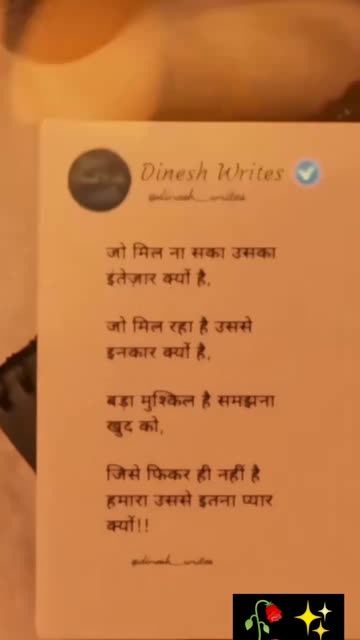 Dinesh Writes
@dinesh_writes
जो मिल ना सका उसका
इंतेज़ार क्यों है,
जो मिल रहा है उससे
इनकार क्यों है,
बड़ा मुश्किल है समझना
खुद को,
जिसे फिकर ही नहीं है
हमारा उससे इतना प्यार
क्यों!!
@dinesh_writes